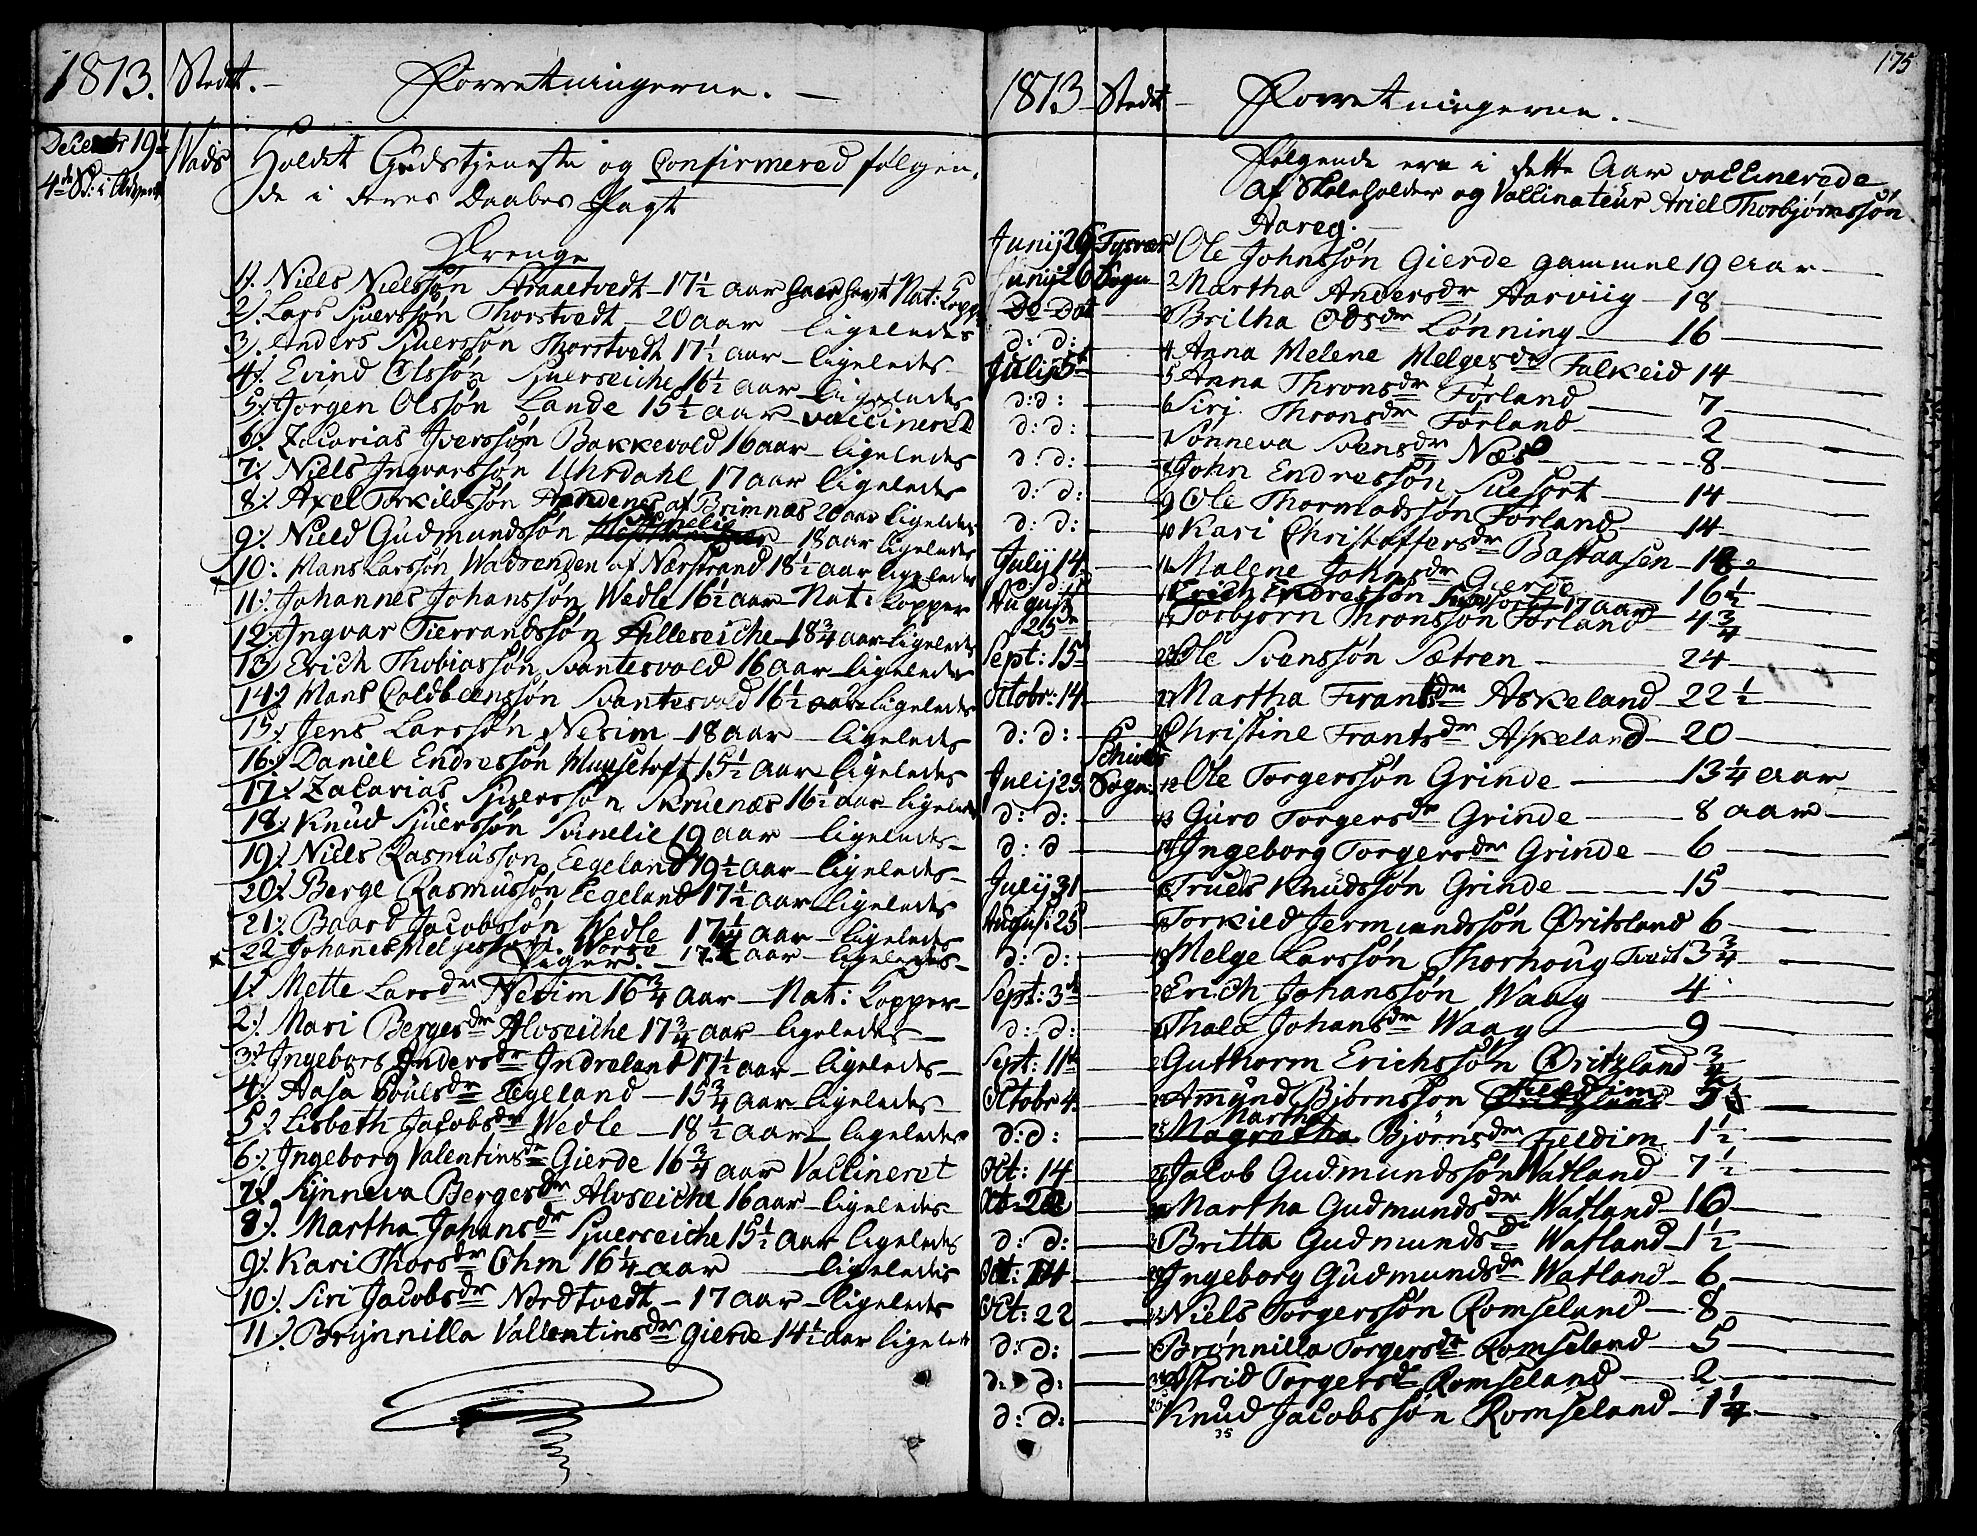 1813. Stedt. Forretningerne.
Decembr 19de Wads Holdt Gudstjeneste og Confirmered følgen-
4de S: i Advent de i deres Daabes Pagt
Drenge
1) Niels Nielssøn Straaetvedt 17½ aar haer havt Nat: Kopp:
2) Lars Siuerssøn Thorstvedt 20 aar ligeledes
3) Anders Siuerssøn Thorstvedt 17½ aar ligeledes
4) Eivind Olssøn Siuerseiche 16½ aar ligeledes
5) Jørgen Olssøn Lande 15½ aar vaccineret
6) Zacarias Iverssøn Bakkevold 16 aar ligeledes
7) Niels Ingvarssøn Uhrdahl 17 aar ligeledes
8) Axel Torkildssøn af Brimnæs 20 aar ligeledes
9) Nield Gudmundssøn Svinelie 18 aar ligeledes
10: Hans Larssøn Wadrenden af Nærstrand 18½ aar ligeledes
11) Johannes Johanssøn Wedle 16½ aar Nat: Kopper
12) Ingvar Tierrandssøn Hilleseiche 18¾ aar ligeledes
13) Erich Thobiassøn Svantesvold 16 aar ligeledes
14) Hans Coldbeenssøn Svantesvold 16½ aar ligeledes
15) Jens Larssøn Nesim 18 aar ligeledes
16) Daniel Endressøn Muusetoft 15½ aar ligeledes
17) Zacarias Siverssøn Skruenæs 16½ aar ligeledes
18) Knud Siuerssøn Svinelie 19 aar ligeledes
19) Niels Rasmussøn Eegeland 19½ aar ligeledes
20) Berge Rasmussøn Eegeland 17½ aar ligeledes
21) Baard Jacobssøn Wedle 17¼ aar ligeledes
22 Johannes Helgessøn 17½ aar ligeledes
Piger.
1) Mette Larsdr Nesim 16¾ aar Nat: Kopper
2) Mari Bergesdr Alvseiche 17¾ aar ligeledes
3) Ingeborg Andersdr Indreland 17½ aar ligeledes
4) Aasa Poulsdr Eegeland 15¾ aar ligeledes
5) Lisbeth Jacobsdr Wedle 18½ aar ligeledes
6) Ingeborg Valentinsdr Gierde 16¾ aar Vaccineret
7) Synneva Bergesdr Alvseiche 16 aar ligeledes
8) Martha Johansdr Siuerseiche 15½ aar ligeledes
9) Kari Thorsdr Ohm 16¼ aar ligeledes
10) Siri Jacobsdr Nordtvedt 17 aar ligeledes
11) Brynnilla Vallentinsdr Gierde 14½ aar ligeledes
175
1813 Stedt Forretningerne.
Følgende ere i dette Aar vaccinerede
af Skoleholder og Vaccinateur Ariel Thorbjørnssøn
Aareg.
Junij 26 Tysvær 1 Ole Johnssøn Gierde gammel 19 aar
Junij 26 Sogn 2 Martha Andersdr Aarviig 18
Do Dot 3 Britha Odsdr Lønning 16
d: d: 4 Anna Melene Helgesdr Falkeid 14
Julij 5te 5 Anna Thronsdr Førland 7
d: d: 6 Siri Thronsdr Førland 2
d: d: 7 Sønneva Svensdr Næs 8
d: d: 8 John Endressøn Suesort 14
d: d: 9 Ole Thormodssøn Førland 14
d: d: 10 Kari Christaffersdr Bastaasen
Julij 14 11 Malene Johnsdr Gierde 16½
d: d: Erich Endressøn 17 aar
August 25de Torbjørn Thronssøn Førland 4¾
Sept: 15 Ole Svenssøn Sætren 24
Octobr: 14 27 Martha Frantsdr Askeland 22½
d: d: Christine Frantsdr Askeland 20
Julij 25 Sogn 12 Ole Torgerssøn Grinde 13¼ aar
d: d: 13 Guro Torgersdr Grinde 8 aar
d: d 14 Ingeborg Torgersdr Grinde 6
Julij 31 Truels Knudssøn Grinde 15
August: 25 Torkild Jermundssøn Øritsland 6
d: d: Helge Larssøn Thorhoug Tveit 3¾
Sept: 3de Erich Johanssøn Waag 4
d: d: Thala Johansdr Waag 9
Sept: 11te Guthorm Erichssøn Øritzland ¾
Octobr 4 Amund Bjørnssøn Fieldim
d: d: Martha Bjørnsdr Fieldim 1½
Oct: 14 Jacob Gudmundssøn Watland 7½
Martha Gudmundsdr Watland 10
d: d: Britta Gudmundsdr Watland 1½
Oct: 14 Ingeborg Gudmundsdr Watland 6
Oct: 22 Niels Torgerssøn Romseland 8
d: d: Brønnilla Torgersdr Romseland 5
d: d: Astrid Torgersdr Romseland 2
d: d: Knud Jacobssøn Romseland 1¼
35